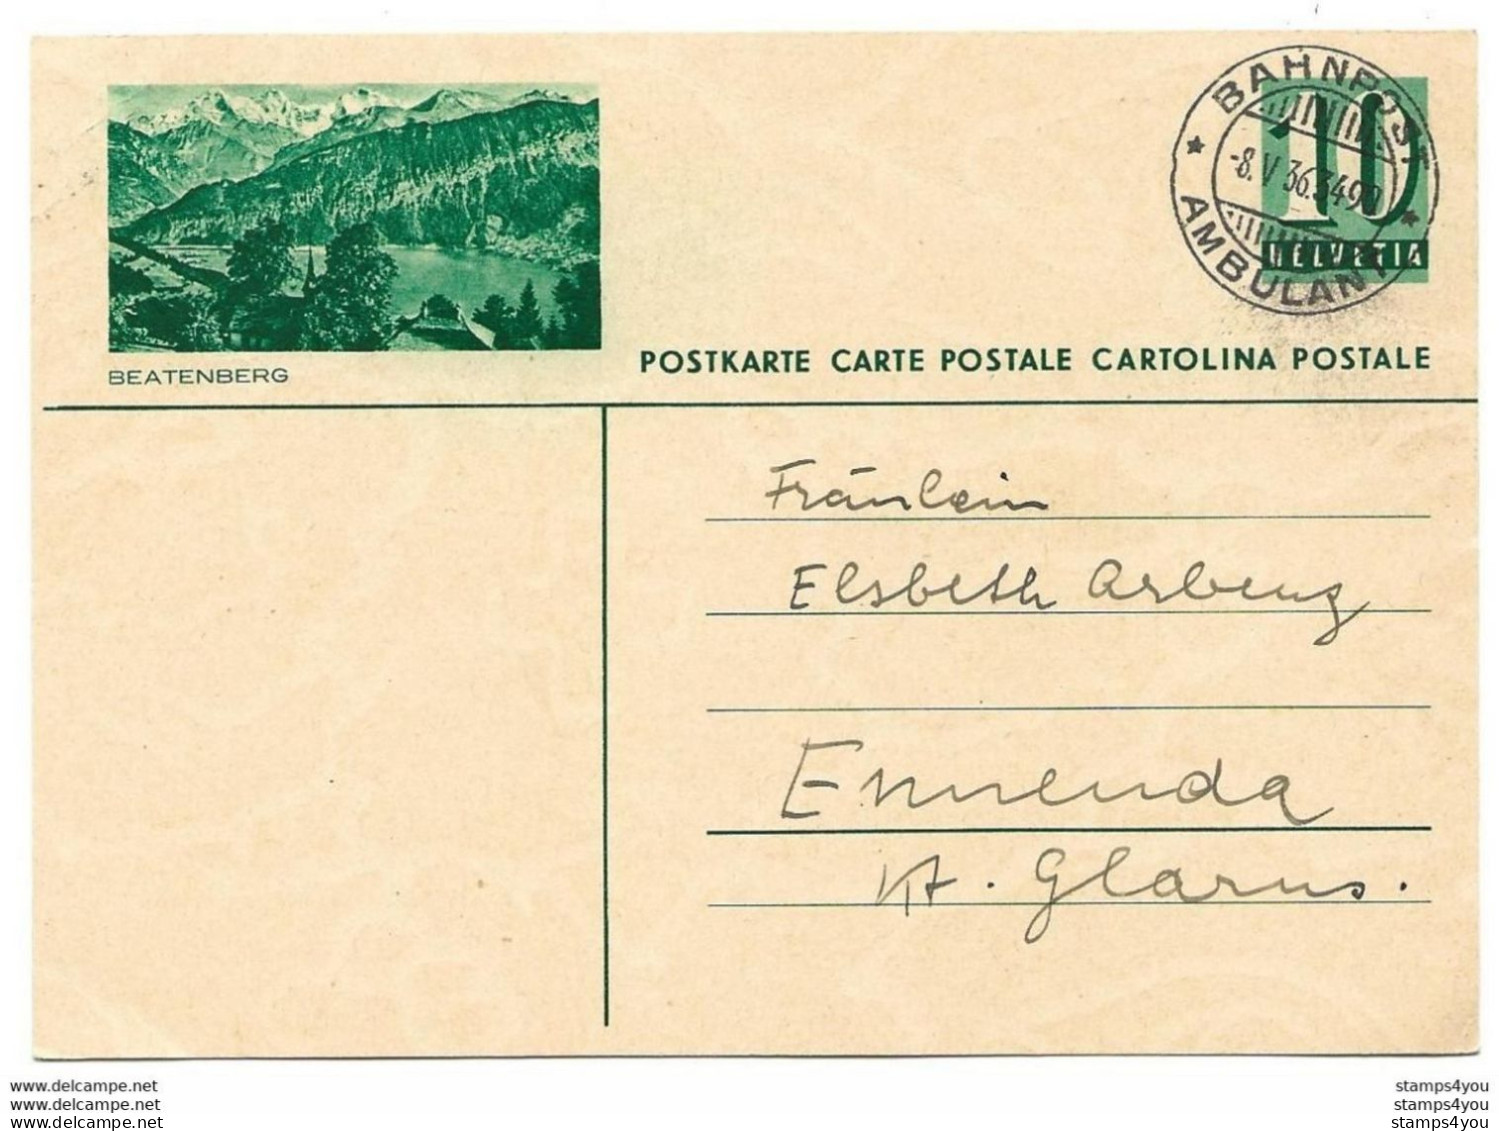 BAHNPOST
-8.V 36.3490
AMBULANT
10
HELVETIA
BEATENBERG
POSTKARTE CARTE POSTALE CARTOLINA POSTALE
Fräulein
Elsbeth Arbenz
Ennenda
Kt. Glarus.
www.delcampe.net
www.delcampe.net
www.delcampe.net
stamps4you
stamps4you
stamps4you